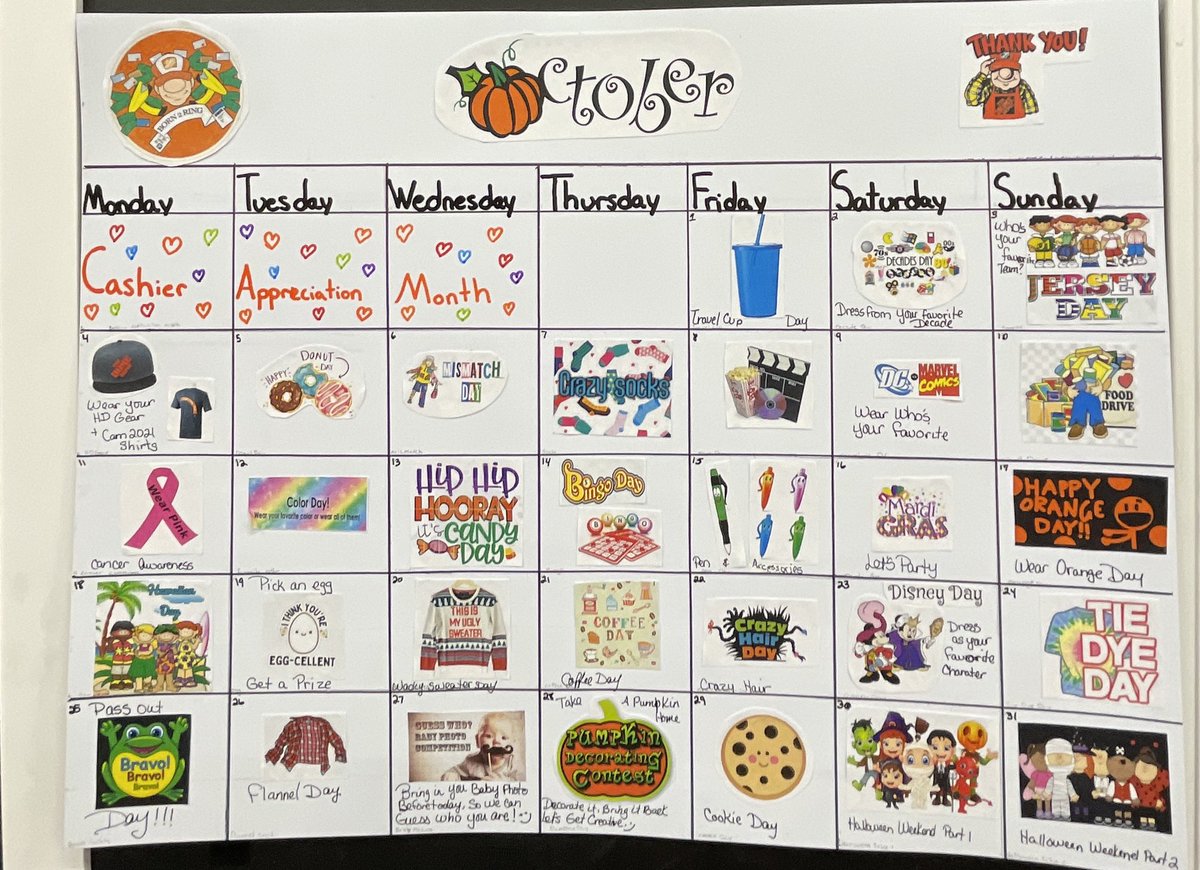 BORN 2 RING
October
THANK YOU!
Monday
Tuesday
Wednesday
Thursday
Friday
Saturday
Sunday
Cashier
Appreciation
Month
1
Travel Cup Day
2
70s
00s
DECADES DAY
90s
Dress From Your Favorite
Decade
3
Who's
your
favorite
Team?
JERSEY
DAY
4
Wear your
HD Gear
+ Cam 2021
Shirts
5
HAPPY
DONUT
DAY
6
MISMATCH
DAY
7
Crazy Socks
8
9
DC
MARVEL
COMICS
Wear Who's
your Favorite
10
FOOD
DRIVE
11
Wear Pink
Cancer Awareness
12
Color Day!
Wear your favorite color or wear all of them!
13
HIP HIP
HOORAY
it's CANDY
DAY
14
Bingo Day
BINGO
15
Pen & Accessories
16
Mardi
GRAS
Let's Party
17
HAPPY
ORANGE
DAY!!
Wear Orange Day
18
Hawaiian
Day
19
Pick an egg
I THINK YOU'RE
EGG-CELLENT
Get a Prize
20
THIS IS
MY UGLY
SWEATER
Wacky Sweater Day
21
COFFEE
DAY
Coffee Day
22
Crazy
Hair
Day
Crazy Hair
23
Disney Day
Dress
as your
Favorite
Charater
24
TIE
DYE
DAY
25
Pass out
Bravo!
Bravo!
Bravo!
Day!!!
26
Flannel Day
27
GUESS WHO?
BABY PHOTO
COMPETITION
Bring in you Baby Photo
Before today, So we can
Guess who you are! :)
28
Take A Pumpkin
Home
PUMPKIN
Decorating
Contest
Decorate it, Bring it Back
Let's Get Creative :)
29
Cookie Day
30
Halloween Weekend Part 1
31
Halloween Weekend Part 2